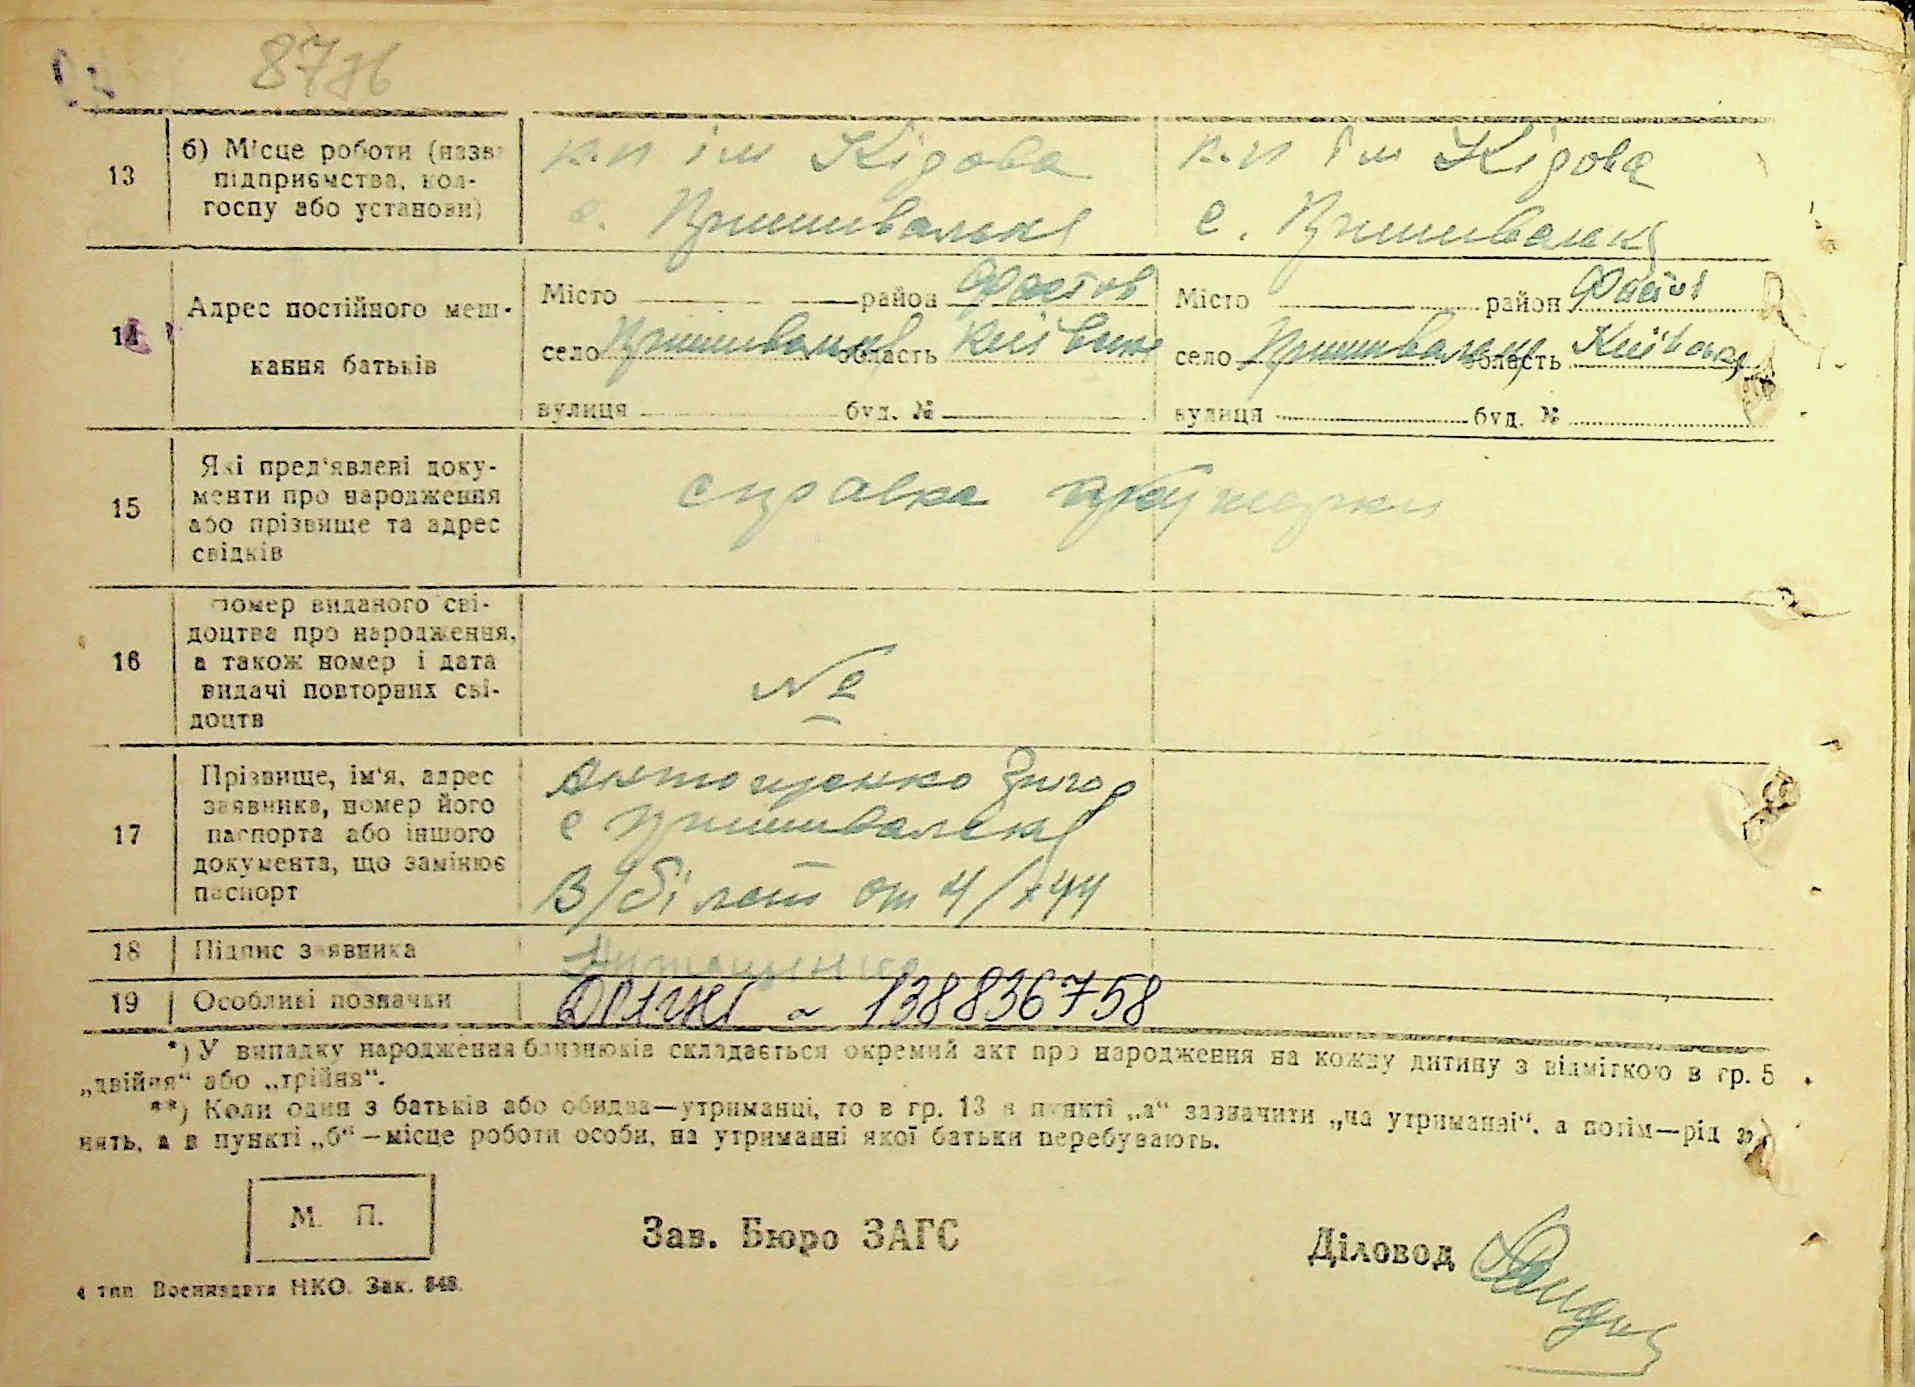 87
13
б) Місце роботи (назва
підприємства, кол-
госпу або установи)
к-п ім Кірова
с. Пришивальня
к-п ім Кірова
с. Пришивальня
14
Адрес постійного меш-
кання батьків
Місто район Фастов
село Пришивальня область Київська
вулиця буд. №
Місто район Фастов
село Пришивальня область Київська
вулиця буд. №
15
Які пред'явлені доку-
менти про народження
або прізвище та адрес
свідків
справка
16
номер виданого сві-
доцтва про народження,
а також номер і дата
видачі повторних сві-
доцтв
№
17
Прізвище, ім'я, адрес
заявника, номер його
паспорта або іншого
документа, що замінює
паспорт
Антощенко Григор
с Пришивальня
В/білет от 4/X 44
18
Підпис заявника
Антощенко
19
Особливі позначки
138836758
*) У випадку народження близнюків складається окремий акт про народження на кожну дитину з відміткою в гр. 5
„двійня“ або „трійня“.
**) Коли один з батьків або обидва—утриманці, то в гр. 13 в пункті „а“ зазначити „на утриманні“, а потім—рід за
нять, а в пункті „б“—місце роботи особи, на утриманні якої батьки перебувають.
М. П.
Зав. Бюро ЗАГС
Діловод
4 тип Воениздата НКО. Зак. 848.